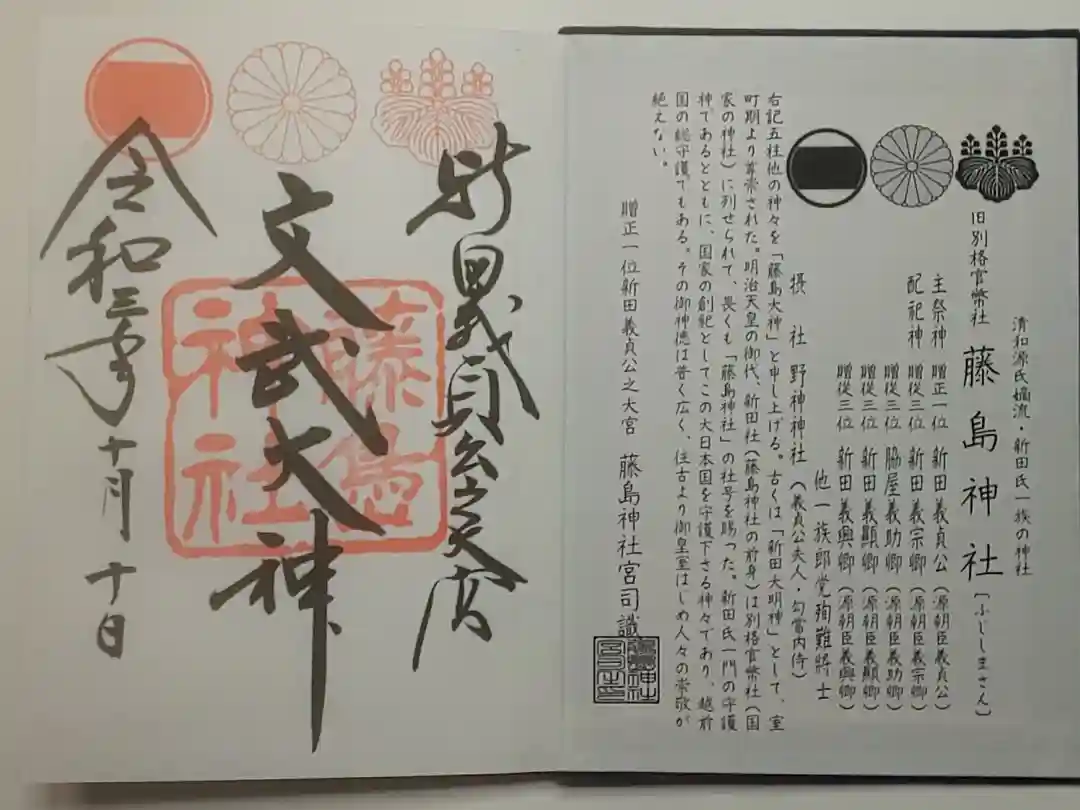 清和源氏嫡流・新田氏一族の神社
旧別格官幣社 藤島神社〔ふじしまさん〕
主祭神 贈正一位 新田義貞公(源朝臣義貞公)
配祀神 贈従三位 新田義宗卿(源朝臣義宗卿)
贈従三位 脇屋義助卿(源朝臣義助卿)
贈従三位 新田義顕卿(源朝臣義顕卿)
贈従三位 新田義興卿(源朝臣義興卿)
他一族郎党殉難将士
摂社 野神神社(義貞公夫人・勾当内侍)
右記五柱他の神々を「藤島大神」と申し上げる。古くは「新田大明神」として、室
町期より尊崇された。明治天皇の御代、新田社(藤島神社の前身)は別格官幣社(国
家の神社)に列せられて、畏くも「藤島神社」の社号を賜った。新田氏一門の守護
神であるとともに、国家の創祀としてこの大日本国を守護下さる神々であり、越前
国の総守護でもある。その御神徳は普く広く、往古より御皇室はじめ人々の崇敬が
絶えない。
贈正一位新田義貞公之大宮 藤島神社宮司識
新田義貞公之大宮
文武大神
藤島
神社
令和三年十月十日